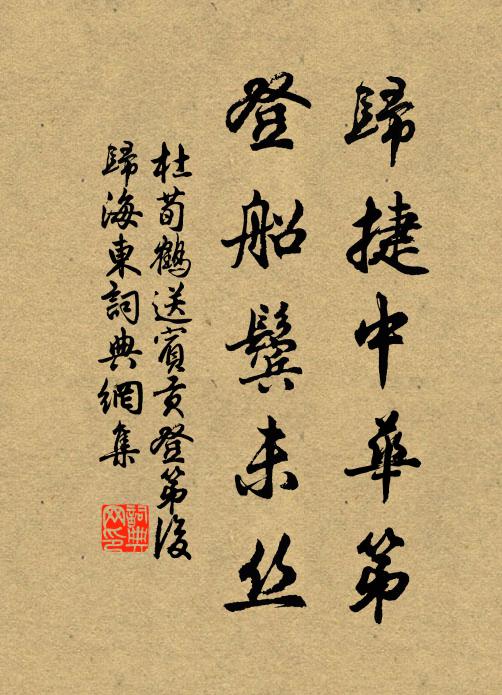 歸捷中華第
登船鬢未丝
杜荀鶴送賓貢登第後
歸海東詞典網集
詞典
网印